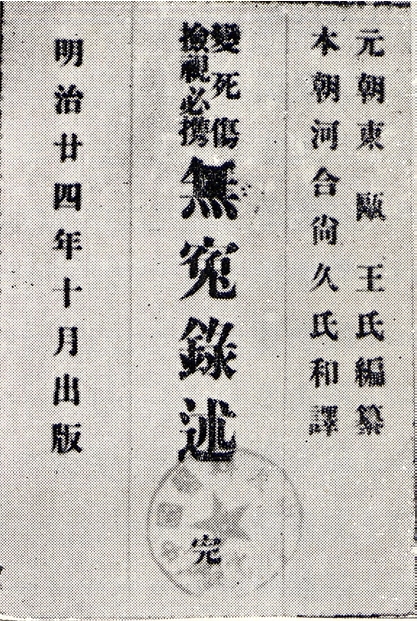 元朝東甌王氏編纂
本朝河合尙久氏和譯
變死傷
撿視必携
無寃錄述 完
明治廿四年十月出版